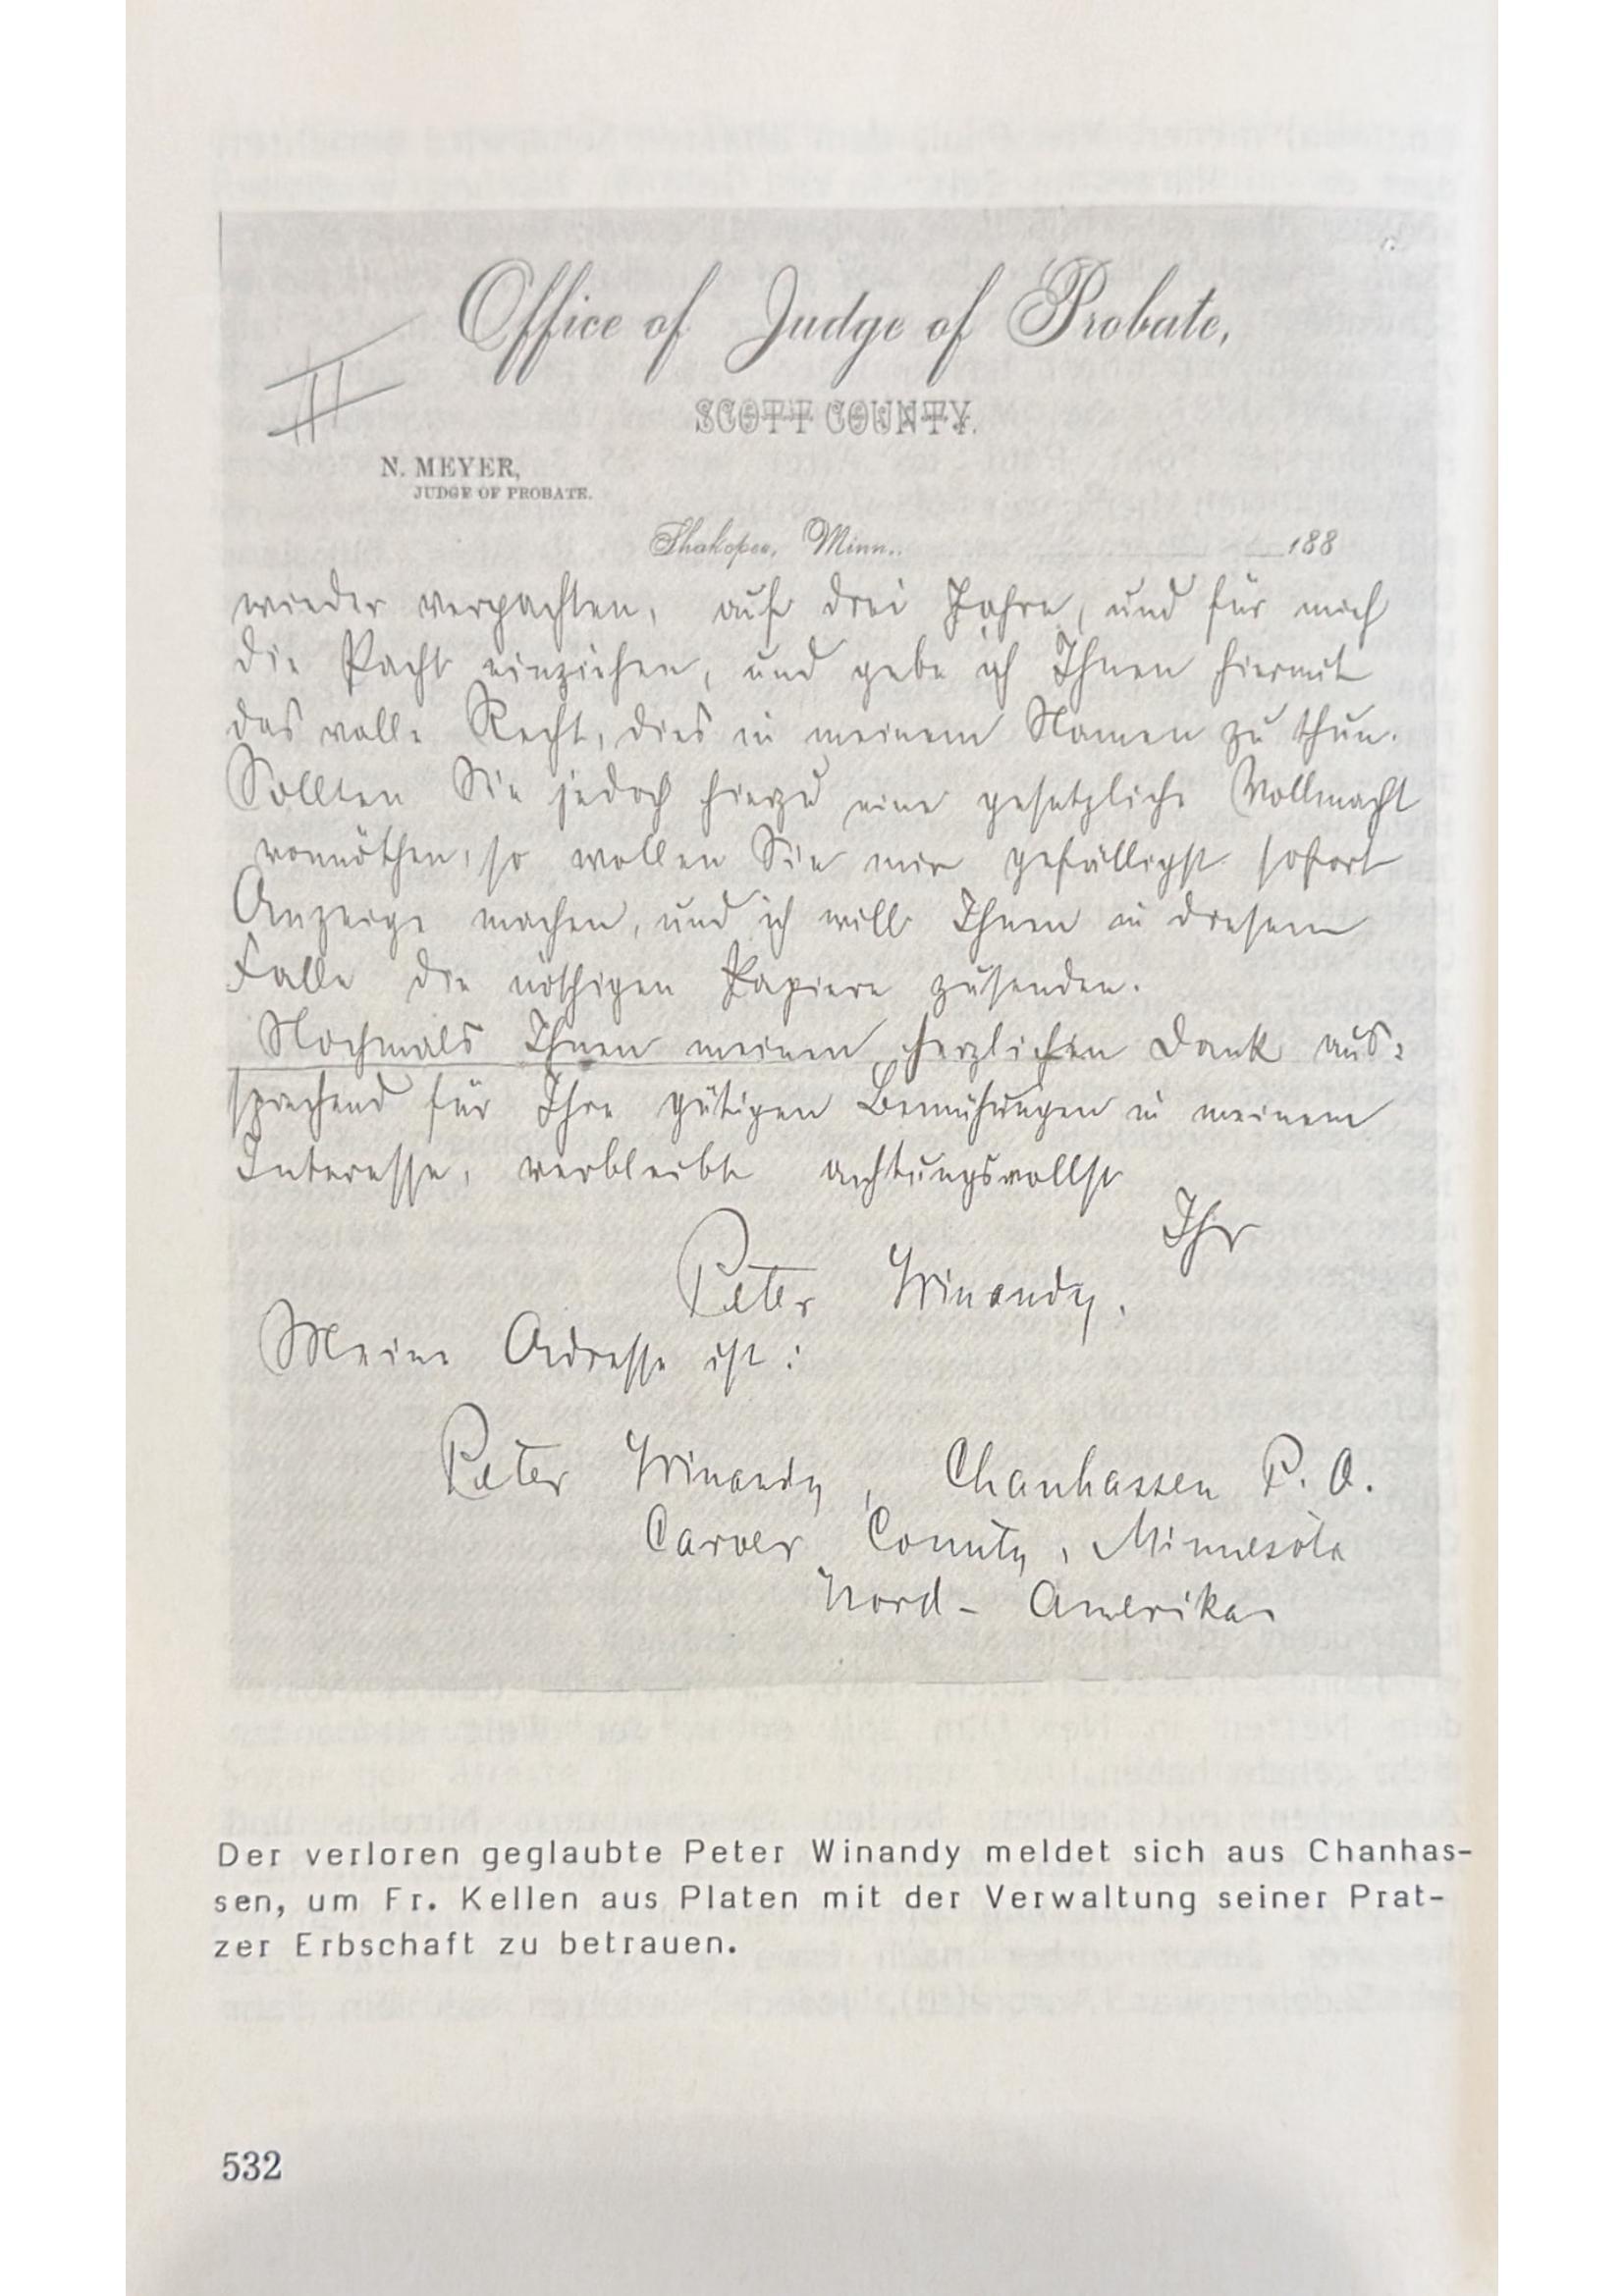 Office of Judge of Probate,
SCOTT COUNTY.
II
N. MEYER,
JUDGE OF PROBATE.
Shakopee, Minn., 188
wieder verpachten, auf drei Jahre, und für mich
die Pacht einziehen, und gebe ich Ihnen hiermit
das volle Recht, dies in meinem Namen zu thun.
Sollten Sie jedoch hierzu eine gesetzliche Vollmacht
vonnöthen, so wollen Sie mir gefälligst sofort
Anzeige machen, und ich will Ihnen in diesem
Falle die nöthigen Papiere zusenden.
Nochmals Ihnen meinen herzlichen Dank aus=
sprechend für Ihre gütigen Bemühungen in meinem
Interesse, verbleibt achtungsvollst
Ihr
Peter Winandy.
Meine Adresse ist:
Peter Winandy, Chanhassen P. O.
Carver County, Minnesota
Nord-Amerika
Der verloren geglaubte Peter Winandy meldet sich aus Chanhas-
sen, um Fr. Kellen aus Platen mit der Verwaltung seiner Prat-
zer Erbschaft zu betrauen.
532